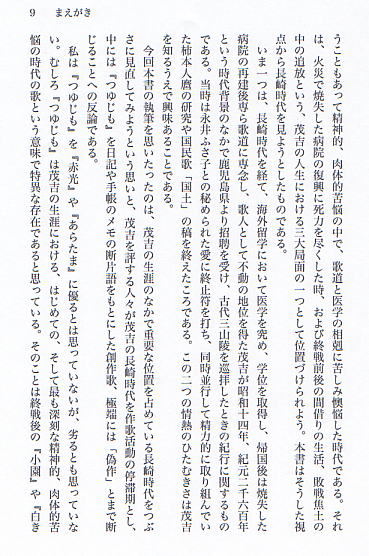 9　まえがき
うこともあって精神的、肉体的苦悩の中で、歌道と医学の相剋に苦しみ懊悩した時代である。それ
は、火災で焼失した病院の復興に死力を尽くした時、および終戦前後の間借りの生活、敗戦焦土の
中の追放という、茂吉の人生における三大局面の一つとして位置づけられよう。本書はそうした視
点から長崎時代を見ようとしたものである。
いま一つは、長崎時代を経て、海外留学において医学を究め、学位を取得し、帰国後は焼失した
病院の再建後専ら歌道に専念し、歌人として不動の地位を得た茂吉が昭和十四年、紀元二千六百年
という時代背景のなかで鹿児島県より招聘を受け、古代三山陵を巡拝したときの紀行に関するもの
である。当時は永井ふさ子との秘められた愛に終止符を打ち、同時並行して精力的に取り組んでい
た柿本人麿の研究や国民歌「国土」の稿を終えたころである。この二つの情熱のひたむきさは茂吉
を知るうえで興味あることである。
今回本書の執筆を思いたったのは、茂吉の生涯のなかで重要な位置を占めている長崎時代をつぶ
さに見直してみようという思いと、茂吉を評する人々が茂吉の長崎時代を作歌活動の停滞期とし、
中には『つゆじも』を日記や手帳のメモの断片語をもとにした創作歌、極端には「偽作」とまで断
じることへの反論である。
私は『つゆじも』を『赤光』や『あらたま』に優るとは思っていないが、劣るとも思っていな
い。むしろ『つゆじも』は茂吉の生涯における、はじめての、そして最も深刻な精神的、肉体的苦
悩の時代の歌という意味で特異な存在であると思っている。そのことは終戦後の『小園』や『白き